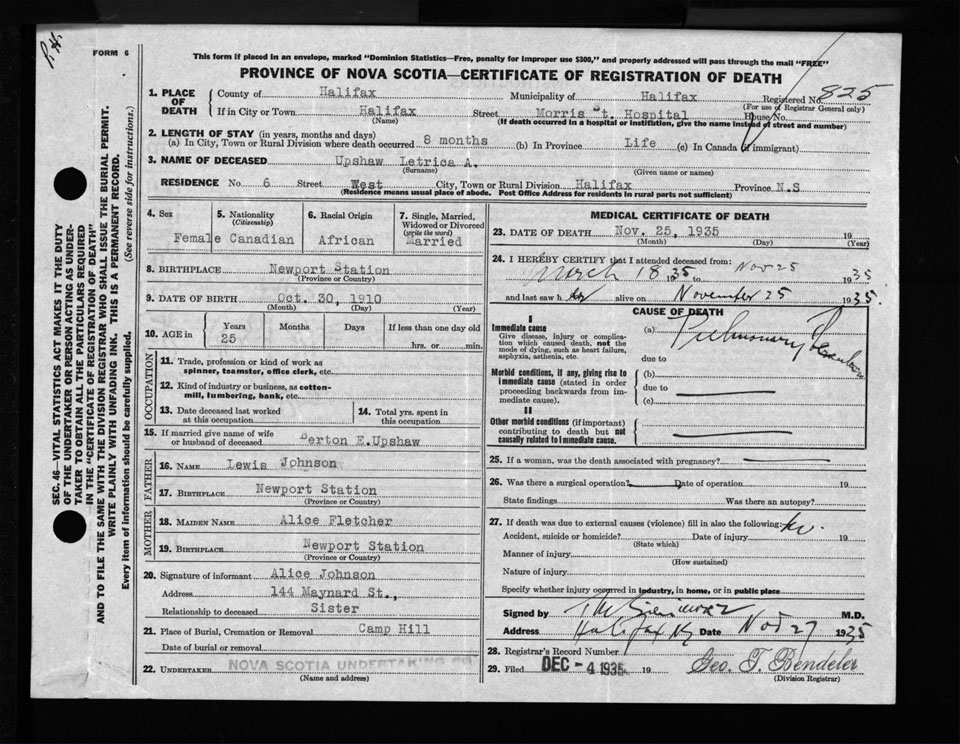 P.H.
FORM 6
This form if placed in an envelope, marked "Dominion Statistics—Free, penalty for improper use $300," and properly addressed will pass through the mail "FREE"
PROVINCE OF NOVA SCOTIA—CERTIFICATE OF REGISTRATION OF DEATH
SEC. 46—VITAL STATISTICS ACT MAKES IT THE DUTY
OF THE UNDERTAKER OR PERSON ACTING AS UNDER-
TAKER TO OBTAIN ALL THE PARTICULARS REQUIRED
IN THE "CERTIFICATE OF REGISTRATION OF DEATH"
AND TO FILE THE SAME WITH THE DIVISION REGISTRAR WHO SHALL ISSUE THE BURIAL PERMIT.
WRITE PLAINLY WITH UNFADING INK. THIS IS A PERMANENT RECORD.
Every item of information should be carefully supplied. (See reverse side for instructions.)
1. PLACE OF DEATH County of Halifax Municipality of Halifax Registered No. 825
(For use of Registrar General only)
If in City or Town Halifax Street Morris St. Hospital House No.
(Name) (If death occurred in a hospital or institution, give the name instead of street and number)
2. LENGTH OF STAY (in years, months and days)
(a) In City, Town or Rural Division where death occurred 8 months (b) In Province Life (c) In Canada (if immigrant)
3. NAME OF DECEASED Upshaw Letrica A.
(Surname) (Given name or names)
RESIDENCE No. 6 Street West City, Town or Rural Division Halifax Province N.S
(Residence means usual place of abode. Post Office Address for residents in rural parts not sufficient)
4. Sex 5. Nationality (Citizenship) 6. Racial Origin 7. Single, Married, Widowed or Divorced (write the word)
Female Canadian African Married
8. BIRTHPLACE Newport Station
(Province or Country)
9. DATE OF BIRTH Oct. 30, 1910
(Month) (Day) (Year)
10. AGE in Years Months Days If less than one day old
25 hrs. or min.
OCCUPATION
11. Trade, profession or kind of work as
spinner, teamster, office clerk, etc.
12. Kind of industry or business, as cotton-
mill, lumbering, bank, etc.
13. Date deceased last worked
at this occupation
14. Total yrs. spent in
this occupation
15. If married give name of wife
or husband of deceased Berton E.Upshaw
FATHER
16. NAME Lewis Johnson
17. BIRTHPLACE Newport Station
(Province or Country)
MOTHER
18. MAIDEN NAME Alice Fletcher
19. BIRTHPLACE Newport Station
(Province or Country)
20. Signature of informant Alice Johnson
Address 144 Maynard St.,
Relationship to deceased Sister
21. Place of Burial, Cremation or Removal Camp Hill
Date of burial or removal
22. UNDERTAKER NOVA SCOTIA UNDERTAKING
(Name and address)
MEDICAL CERTIFICATE OF DEATH
23. DATE OF DEATH Nov. 25, 1935 19
(Month) (Day) (Year)
24. I HEREBY CERTIFY that I attended deceased from:
March 18 1935 to Nov 25 1935
and last saw her alive on November 25 1935.
CAUSE OF DEATH
I
Immediate cause
Give disease, injury or complica-
tion which caused death, not the
mode of dying, such as heart failure,
asphyxia, asthenia, etc.
(a) Pulmonary
due to
Morbid conditions, if any, giving rise to
immediate cause (stated in order
proceeding backwards from im-
mediate cause).
(b)
due to
(c)
II
Other morbid conditions (if important)
contributing to death but not
causally related to immediate cause.
25. If a woman, was the death associated with pregnancy?
26. Was there a surgical operation? Date of operation 19
State findings Was there an autopsy?
27. If death was due to external causes (violence) fill in also the following: no.
Accident, suicide or homicide? Date of injury 19
(State which)
Manner of injury
(How sustained)
Nature of injury
Specify whether injury occurred in industry, in home, or in public place
Signed by M.D.
Address Halifax NS Date Nov 27 1935
28. Registrar's Record Number
29. Filed DEC - 4 1935 19 Geo. T. Bendeler
(Division Registrar)